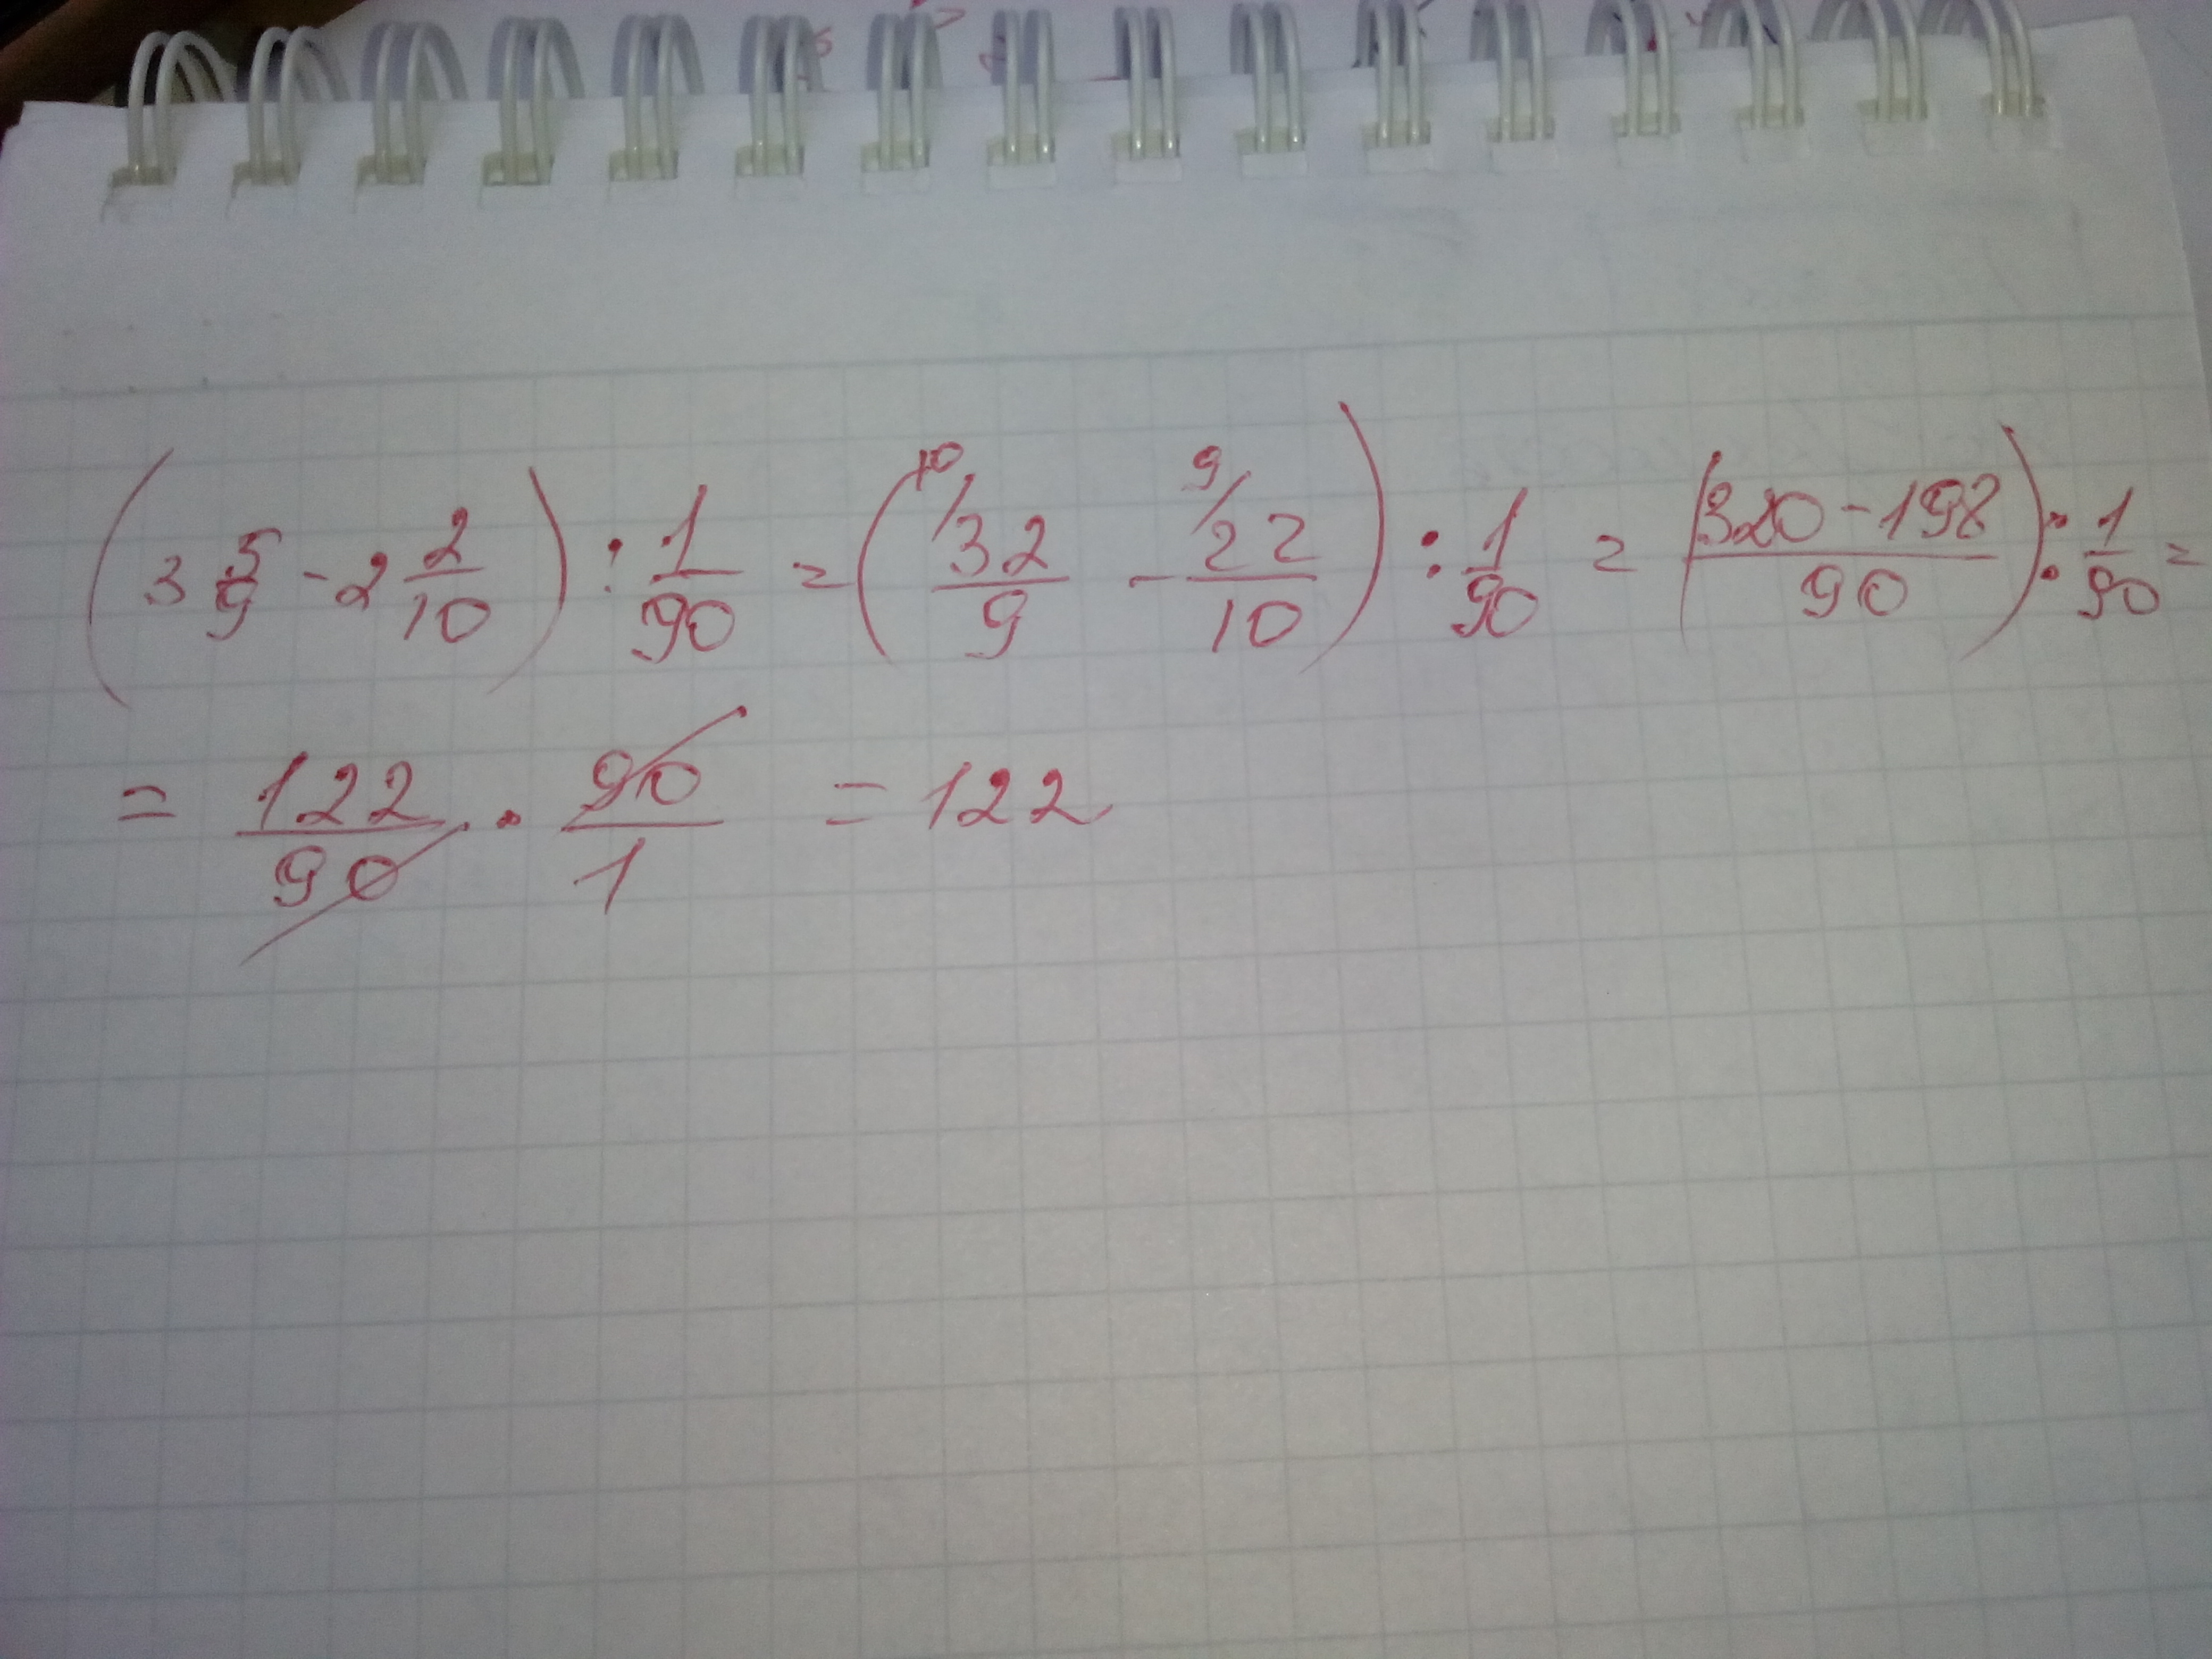 (3 5/9 - 2 2/10) : 1/90 = (10/ 32/9 - 9/ 22/10) : 1/90 = (320-198/90) : 1/90 =
= 122/90 · 90/1 = 122